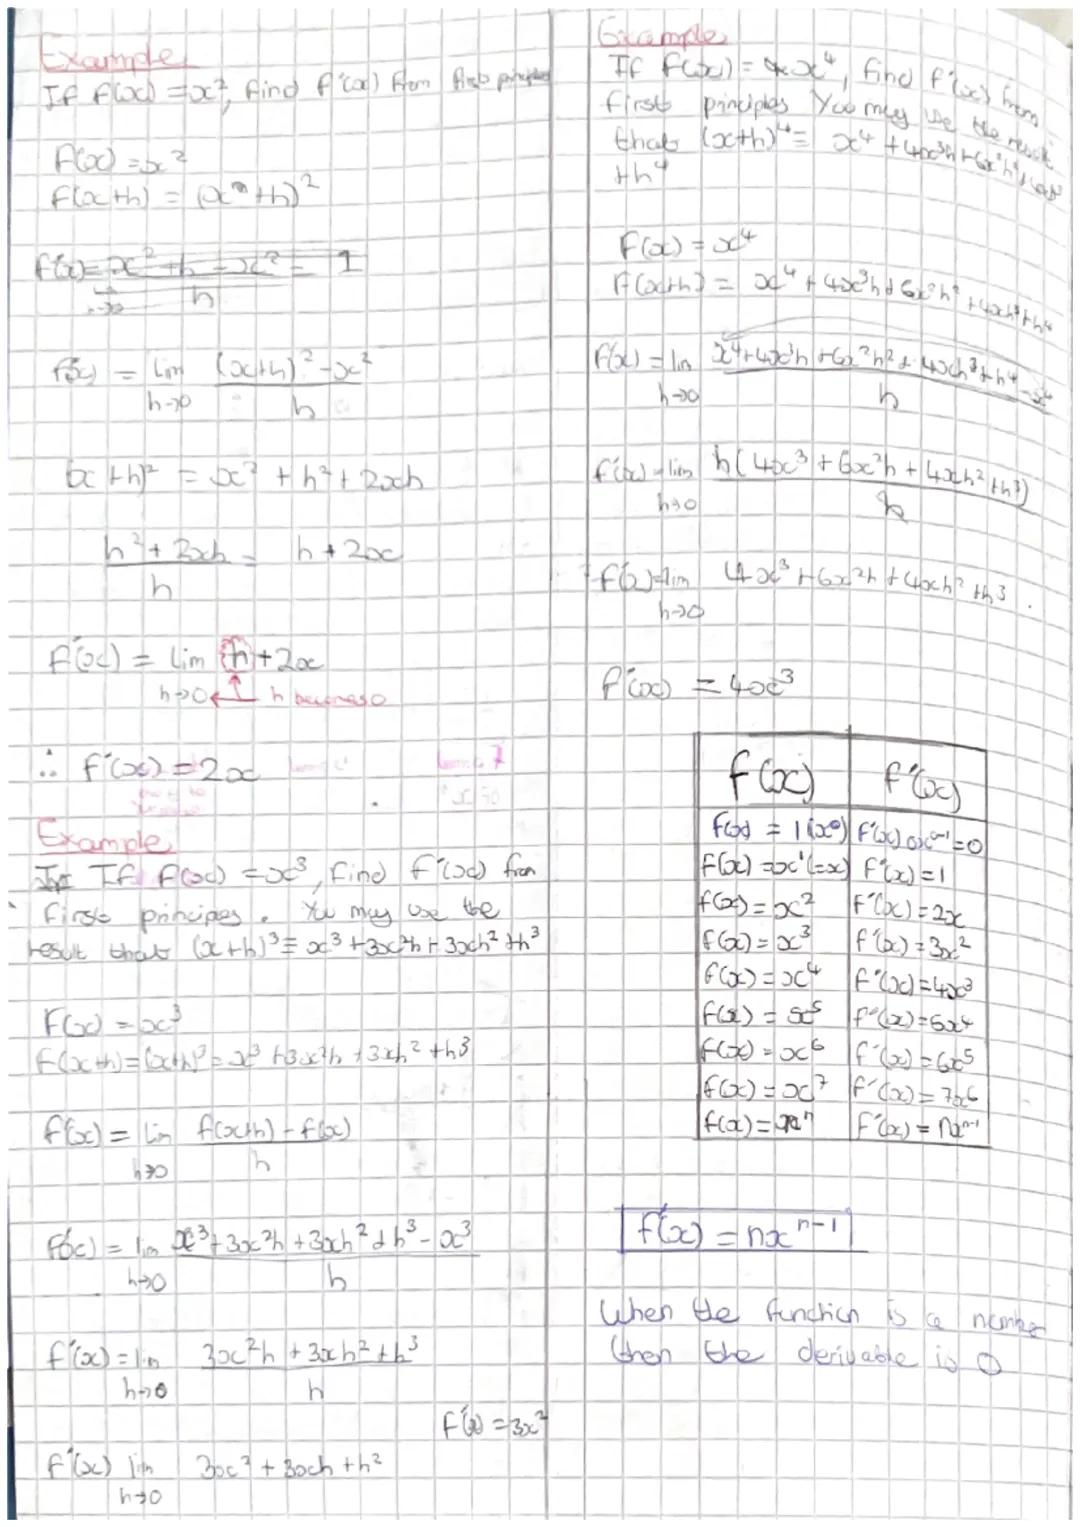 Example
If f(x) = x², find f'(x) from first principles
f(x) = x²
f(x+h) = (x+h)²
f'(x) = x² + h - x² = 1
h
f'(x) = lim (x+h)² - x²
h→0 h
(x+h)² = x² + h² + 2xh
h² + 2xh = h + 2x
h
f'(x) = lim h + 2x
h→0 h becomes 0
∴ f'(x) = 2x
Example
If f(x) = x³, find f'(x) from
first principes. You may use the
result that (x+h)³ ≡ x³ + 3x²h + 3xh² + h³
f(x) = x³
f(x+h) = (x+h)³ = x³ + 3x²h + 3xh² + h³
f'(x) = lim f(x+h) - f(x)
h→0 h
f'(x) = lim x³ + 3x²h + 3xh² + h³ - x³
h→0 h
f'(x) = lim 3x²h + 3xh² + h³
h→0 h
f'(x) = 3x²
f'(x) lim 3x² + 3xh + h²
h→0
Example
If f(x) = x⁴, find f'(x) from
first principles You may use the result
that (x+h)⁴ = x⁴ + 4x³h + 6x²h² + 4xh³
+ h⁴
f(x) = x⁴
f(x+h) = x⁴ + 4x³h + 6x²h² + 4xh³ + h⁴
f'(x) = lim x⁴ + 4x³h + 6x²h² + 4xh³ + h⁴ - x⁴
h→0 h
f'(x) = lim h(4x³ + 6x²h + 4xh² + h³)
h→0 h
f'(x) = lim 4x³ + 6x²h + 4xh² + h³.
h→0
f'(x) = 4x³
f(x) f'(x)
f(x) = 1(x⁰) f'(x) 0x⁰⁻¹ = 0
f(x) = x¹(=x) f'(x) = 1
f(x) = x² f'(x) = 2x
f(x) = x³ f'(x) = 3x²
f(x) = x⁴ f'(x) = 4x³
f(x) = x⁵ f'(x) = 5x⁴
f(x) = x⁶ f'(x) = 6x⁵
f(x) = x⁷ f'(x) = 7x⁶
f(x) = xⁿ f'(x) = nxⁿ⁻¹
f'(x) = nxⁿ⁻¹
When the function is a number
then the derivable is 0